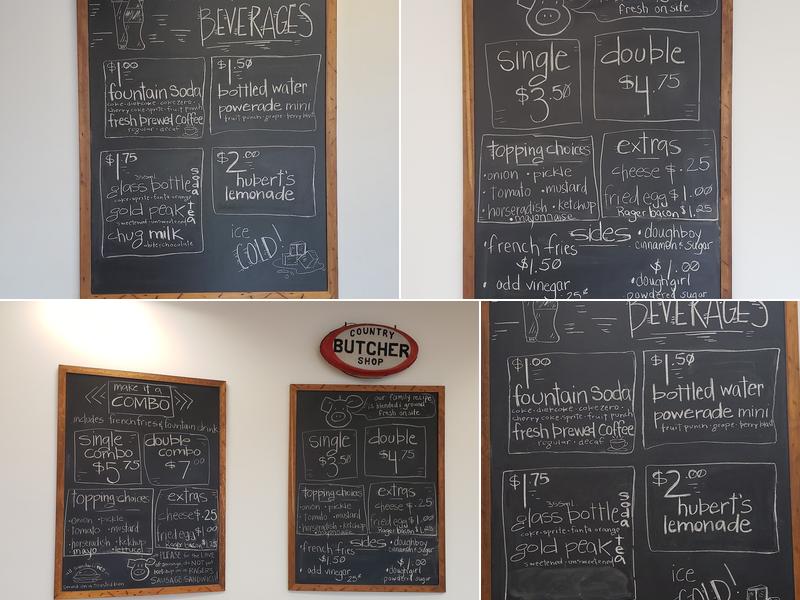 BEVERAGES
$1.00
fountain soda
coke · diet coke · coke zero ·
cherry coke · sprite · fruit punch
fresh brewed coffee
regular · decaf
$1.50
bottled water
powerade mini
fruit punch · grape · berry blast
$1.75
355ml
glass bottle soda
coke · sprite · fanta orange
gold peak tea
sweetened · unsweetened
chug milk
white · chocolate
$2.00
hubert's
lemonade
ice
COLD!
fresh on site
single
$3.50
double
$4.75
topping choices
· onion · pickle
· tomato · mustard
· horseradish · ketchup
· mayonnaise
extras
cheese $.25
fried egg $1.00
Rager bacon $1.25
sides
· french fries
$1.50
· add vinegar
.25¢
· doughboy
cinnamon & sugar
$1.00
· doughgirl
powdered sugar
make it a
COMBO
includes french fries & fountain drink
single
combo
$5.75
double
combo
$7.00
topping choices
· onion · pickle
· tomato · mustard
· horseradish · ketchup
· mayo · lettuce
extras
cheese $.25
fried egg $1.00
Rager bacon $1.25
PLEASE for the LOVE
of sausage, do NOT put
ketchup on a RAGERS
SAUSAGE SANDWICH!
COUNTRY
BUTCHER
SHOP
our family recipe
is blended & ground
fresh on site
single
$3.50
double
$4.75
topping choices
· onion · pickle
· tomato · mustard
· horseradish · ketchup
· mayonnaise
extras
cheese $.25
fried egg $1.00
Rager bacon $1.25
sides
· french fries
$1.50
· add vinegar
.25¢
· doughboy
cinnamon & sugar
$1.00
· doughgirl
powdered sugar
BEVERAGES
$1.00
fountain soda
coke · diet coke · coke zero ·
cherry coke · sprite · fruit punch
fresh brewed coffee
regular · decaf
$1.50
bottled water
powerade mini
fruit punch · grape · berry blast
$1.75
355ml
glass bottle soda
coke · sprite · fanta orange
gold peak tea
sweetened · unsweetened
$2.00
hubert's
lemonade
ice
COLD!